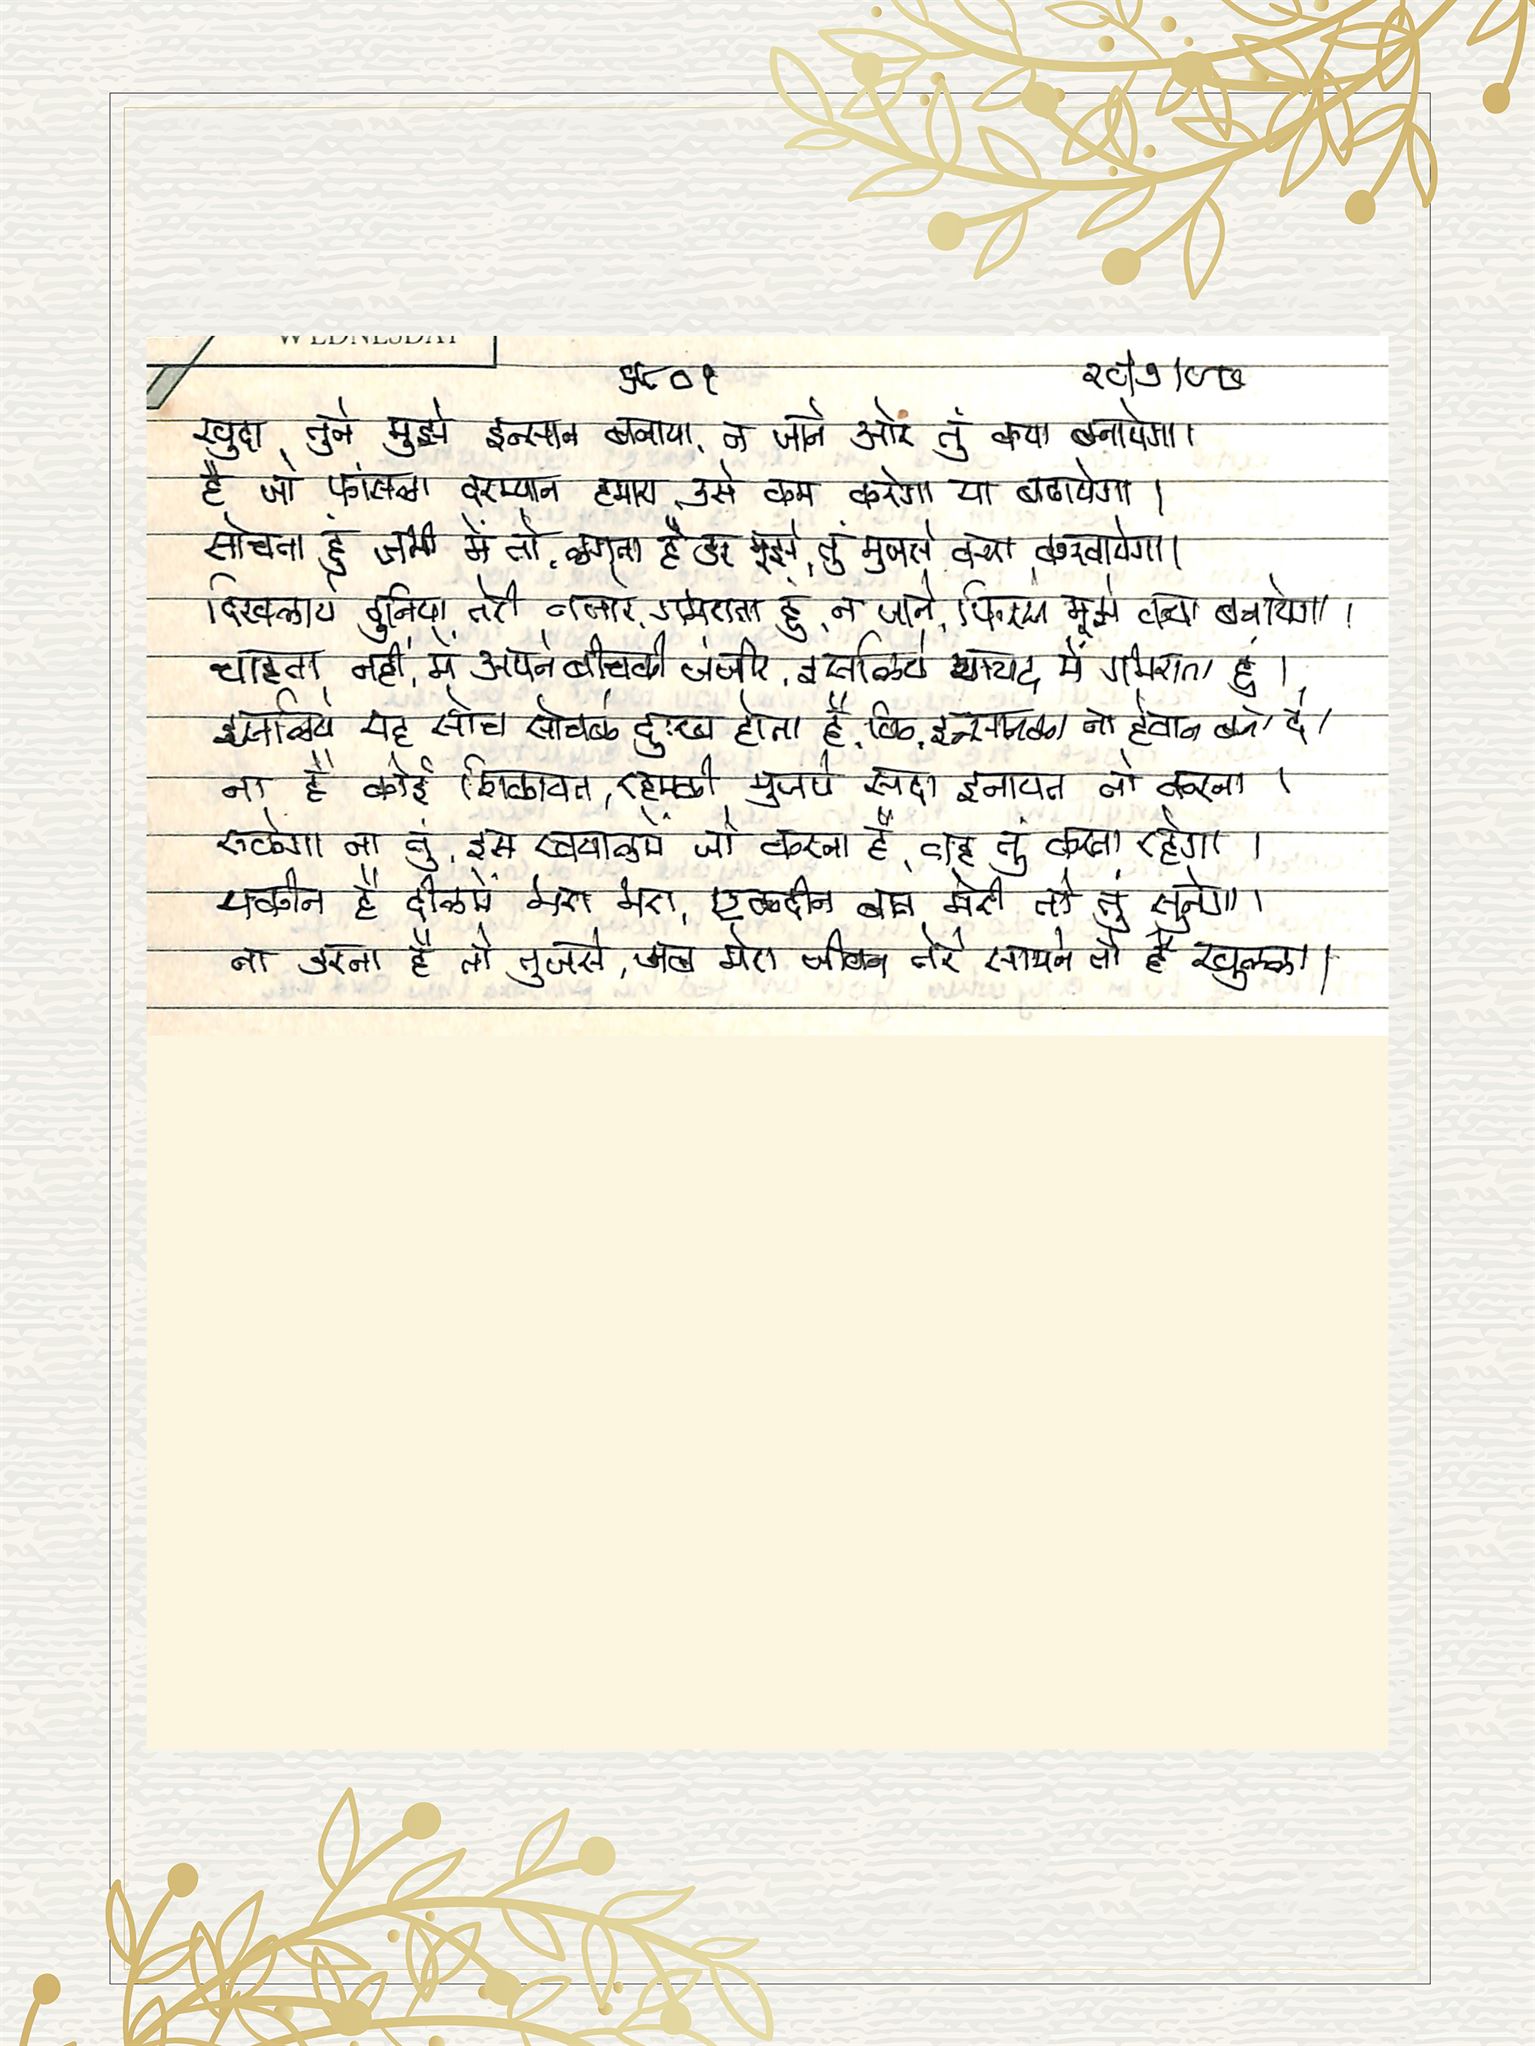 WEDNESDAY
खुदा, तुने मुझे इन्सान बनाया, न जाने ओर तुं क्या बनायेगा।
है जो फांसला दरम्यान हमारा, उसे कम करेगा या बढायेगा।
सोचता हुं जभी में तो, लगता है डर मुझे, तुं मुजसे क्या करवायेगा।
दिखलाये दुनिया तेरी नजारे, गभराता हुं, न जाने, फिरसे मुझे क्या बनायेगा।
चाहता नही, में अपने बीचकी जंजीर, इसलिये शायद में गभराता हुं।
इसलिये यह सोच सोचके दुःख होता है, कि, इन्सानका ना हेवान बना दे।
ना है कोई शिकायत, रहमकी मुजपे सदा इनायत तो करना।
रुकेगा ना तुं, इस खयालमें जो करना है, वह तुं करता रहेगा।
यकीन है दीलमें मेरा मेरा, एकदीन बात मेरी तो तुं सुनेगा।
ना डरना है तो तुजसे, अब मेरा जीवन तेरे सामने तो है खुल्ला।